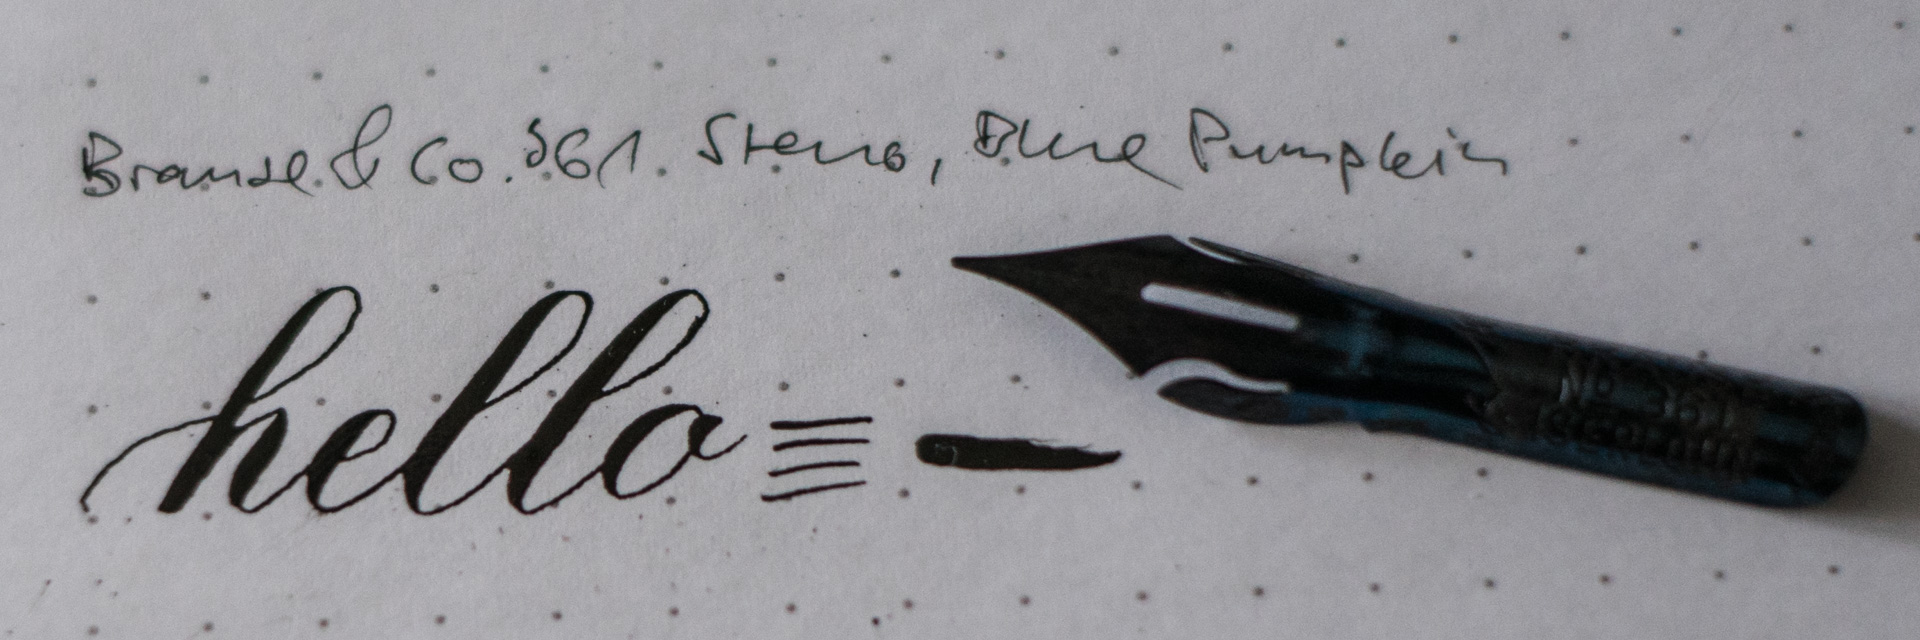 Brause & Co. 361. Steno, Blue Pumpkin
hello
No 361
ISERLOHN